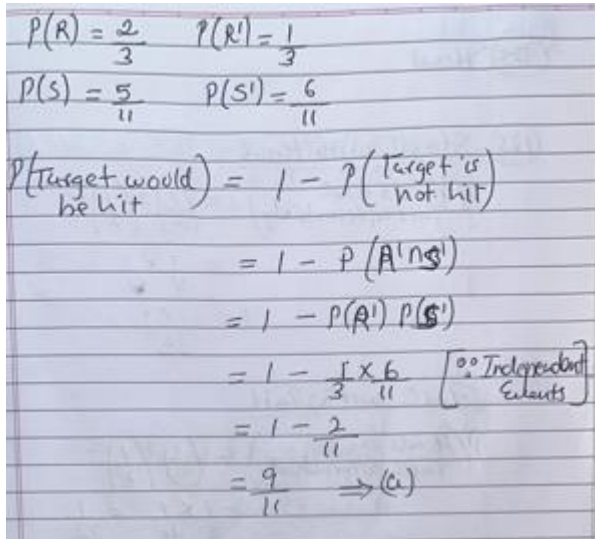 P(R) = 2/3 P(R') = 1/3
P(S) = 5/11 P(S') = 6/11
P(Target would be hit) = 1 - P(Target is not hit)
= 1 - P(R'∩S')
= 1 - P(R') P(S')
= 1 - 1/3 × 6/11 [∵ Independent Events]
= 1 - 2/11
= 9/11 ⇒ (a)